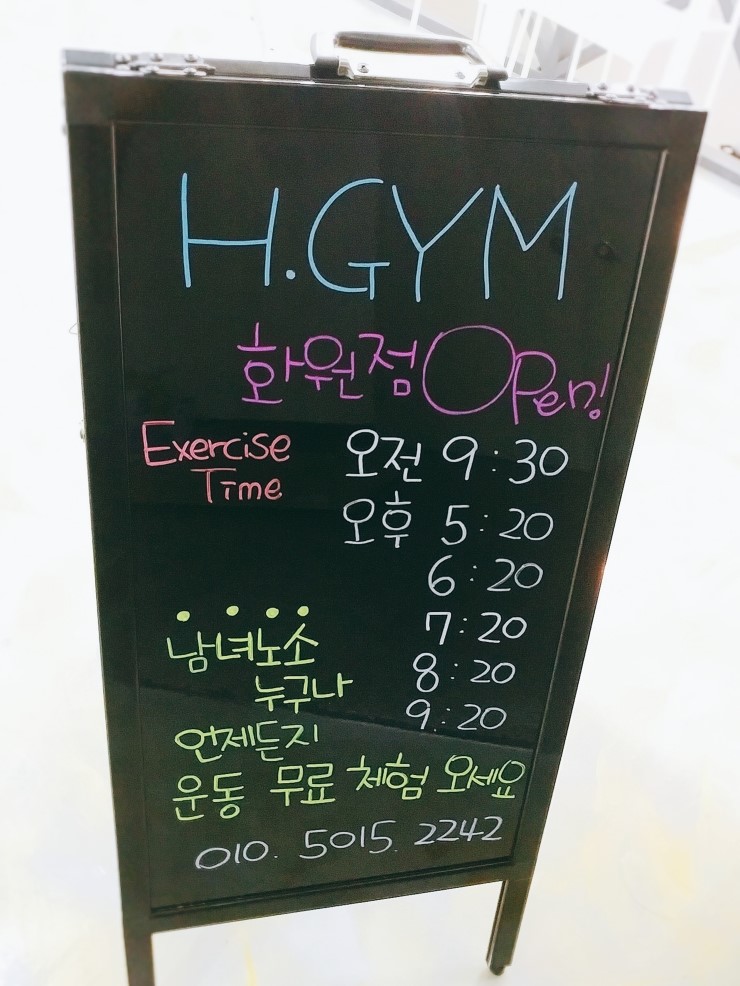 H.GYM
화원점 Open!
Exercise
Time
오전 9:30
오후 5:20
6:20
7:20
8:20
9:20
남녀노소
누구나
언제든지
운동 무료 체험 오세요
010. 5015. 2242